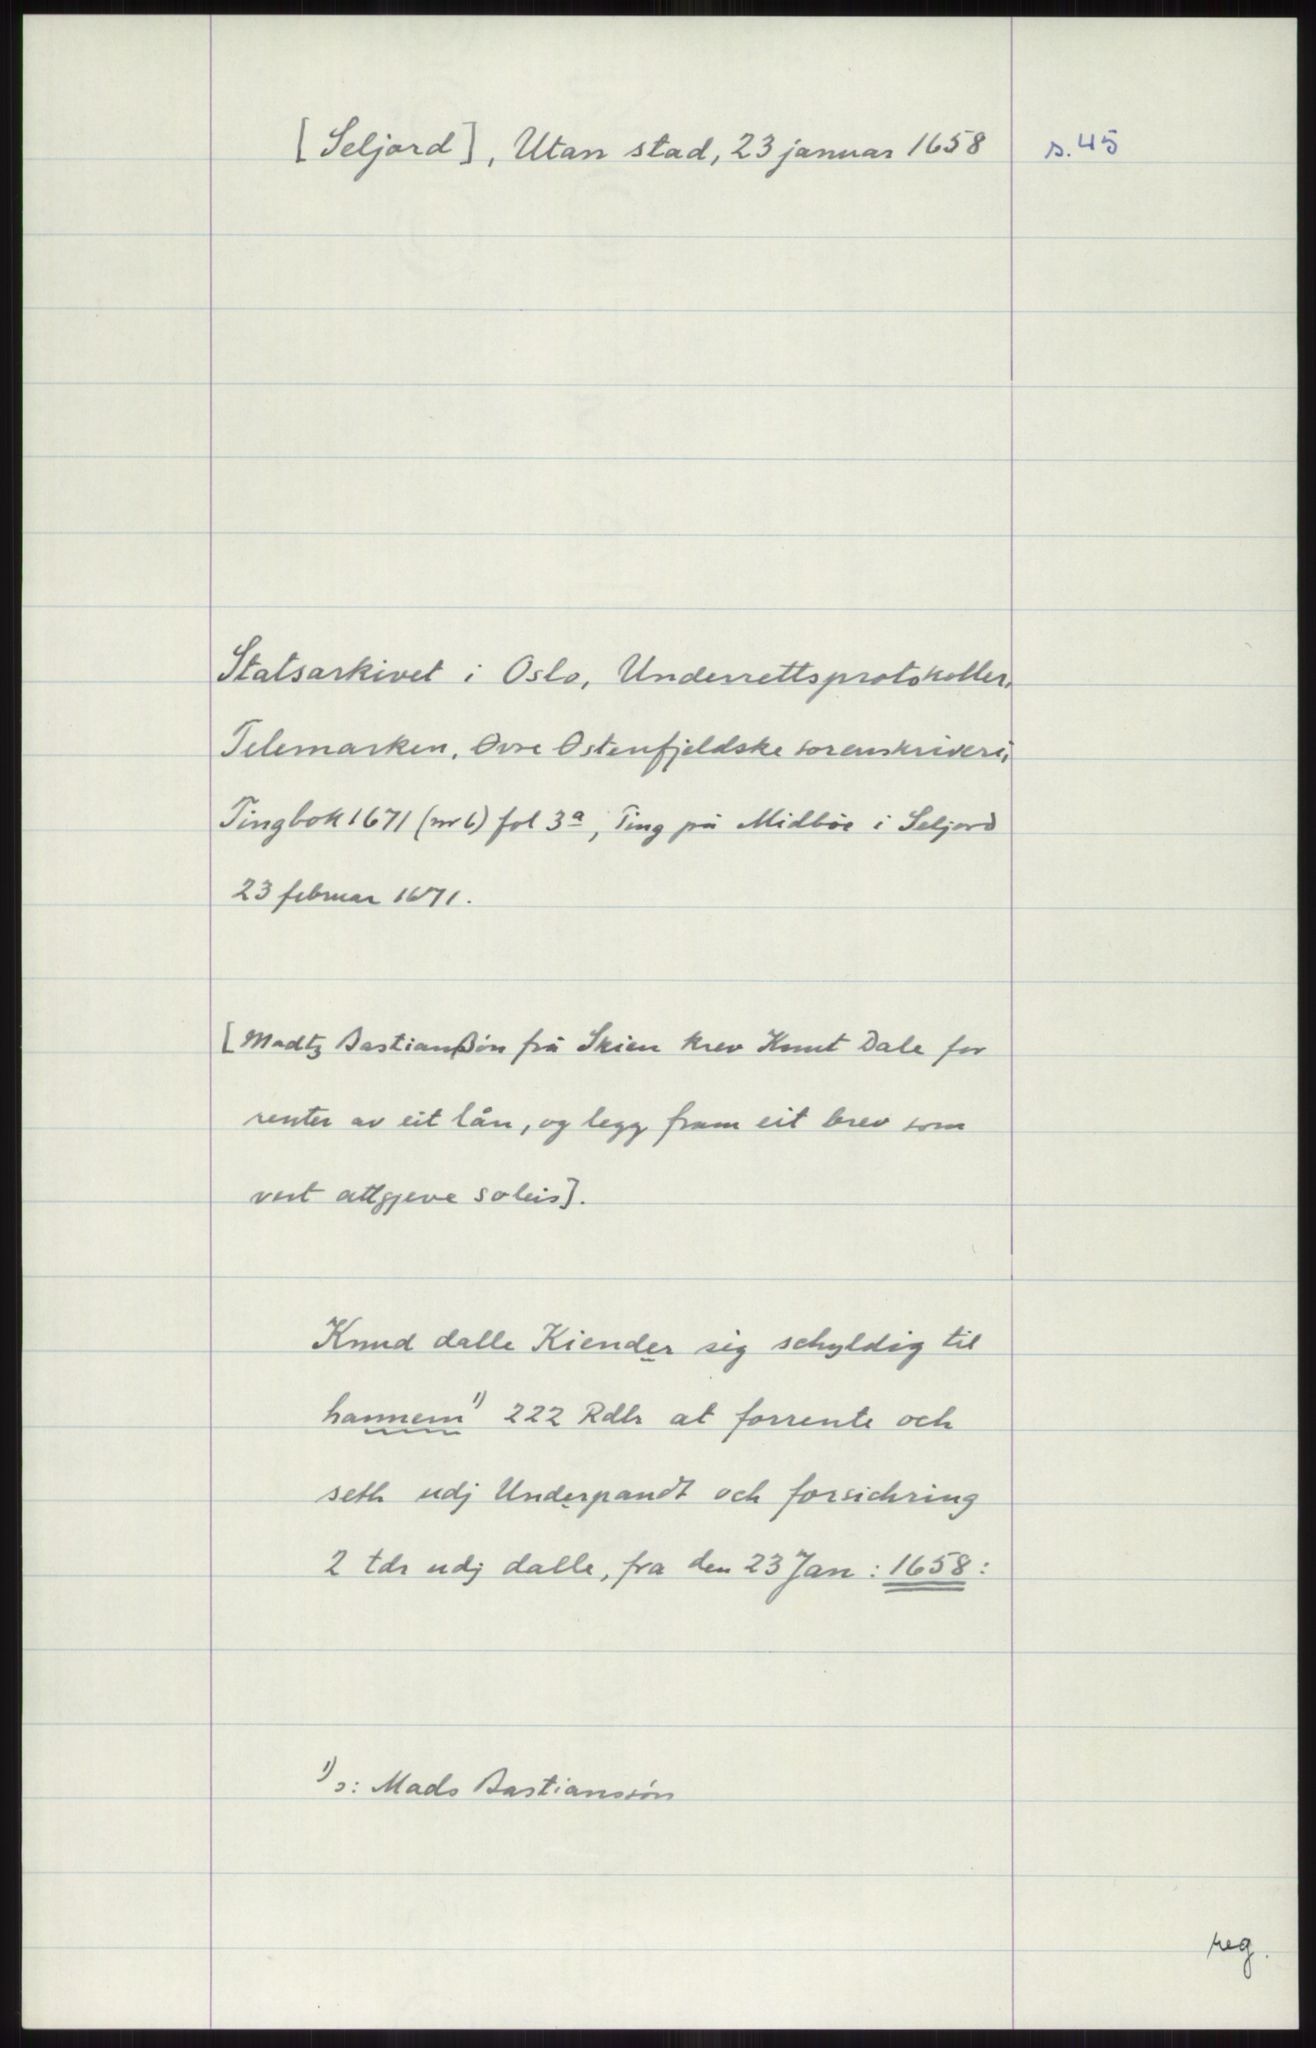 [Seljord], Utan stad, 23 januar 1658 s. 45
Statsarkivet i Oslo, Underrettsprotokoller,
Telemarken, Øvre Østenfjeldske sorenskriveri,
Tingbok 1671 (nr 6) fol 3a, Ting på Midbøe i Seljord
23 februar 1671.
[Madtz Bastianßön frå Skien krev Knut Dale for
renter av eit lån, og legg fram eit brev som
vert attgjeve soleis].
Knud dalle Kiender sig schyldig til
hannem 1) 222 Rdlr at forrente och
seth udj Underpandt och forsichring
2 tdr udj dalle, fra den 23 Jan: 1658:
1) ɔ: Mads Bastianssön
reg.